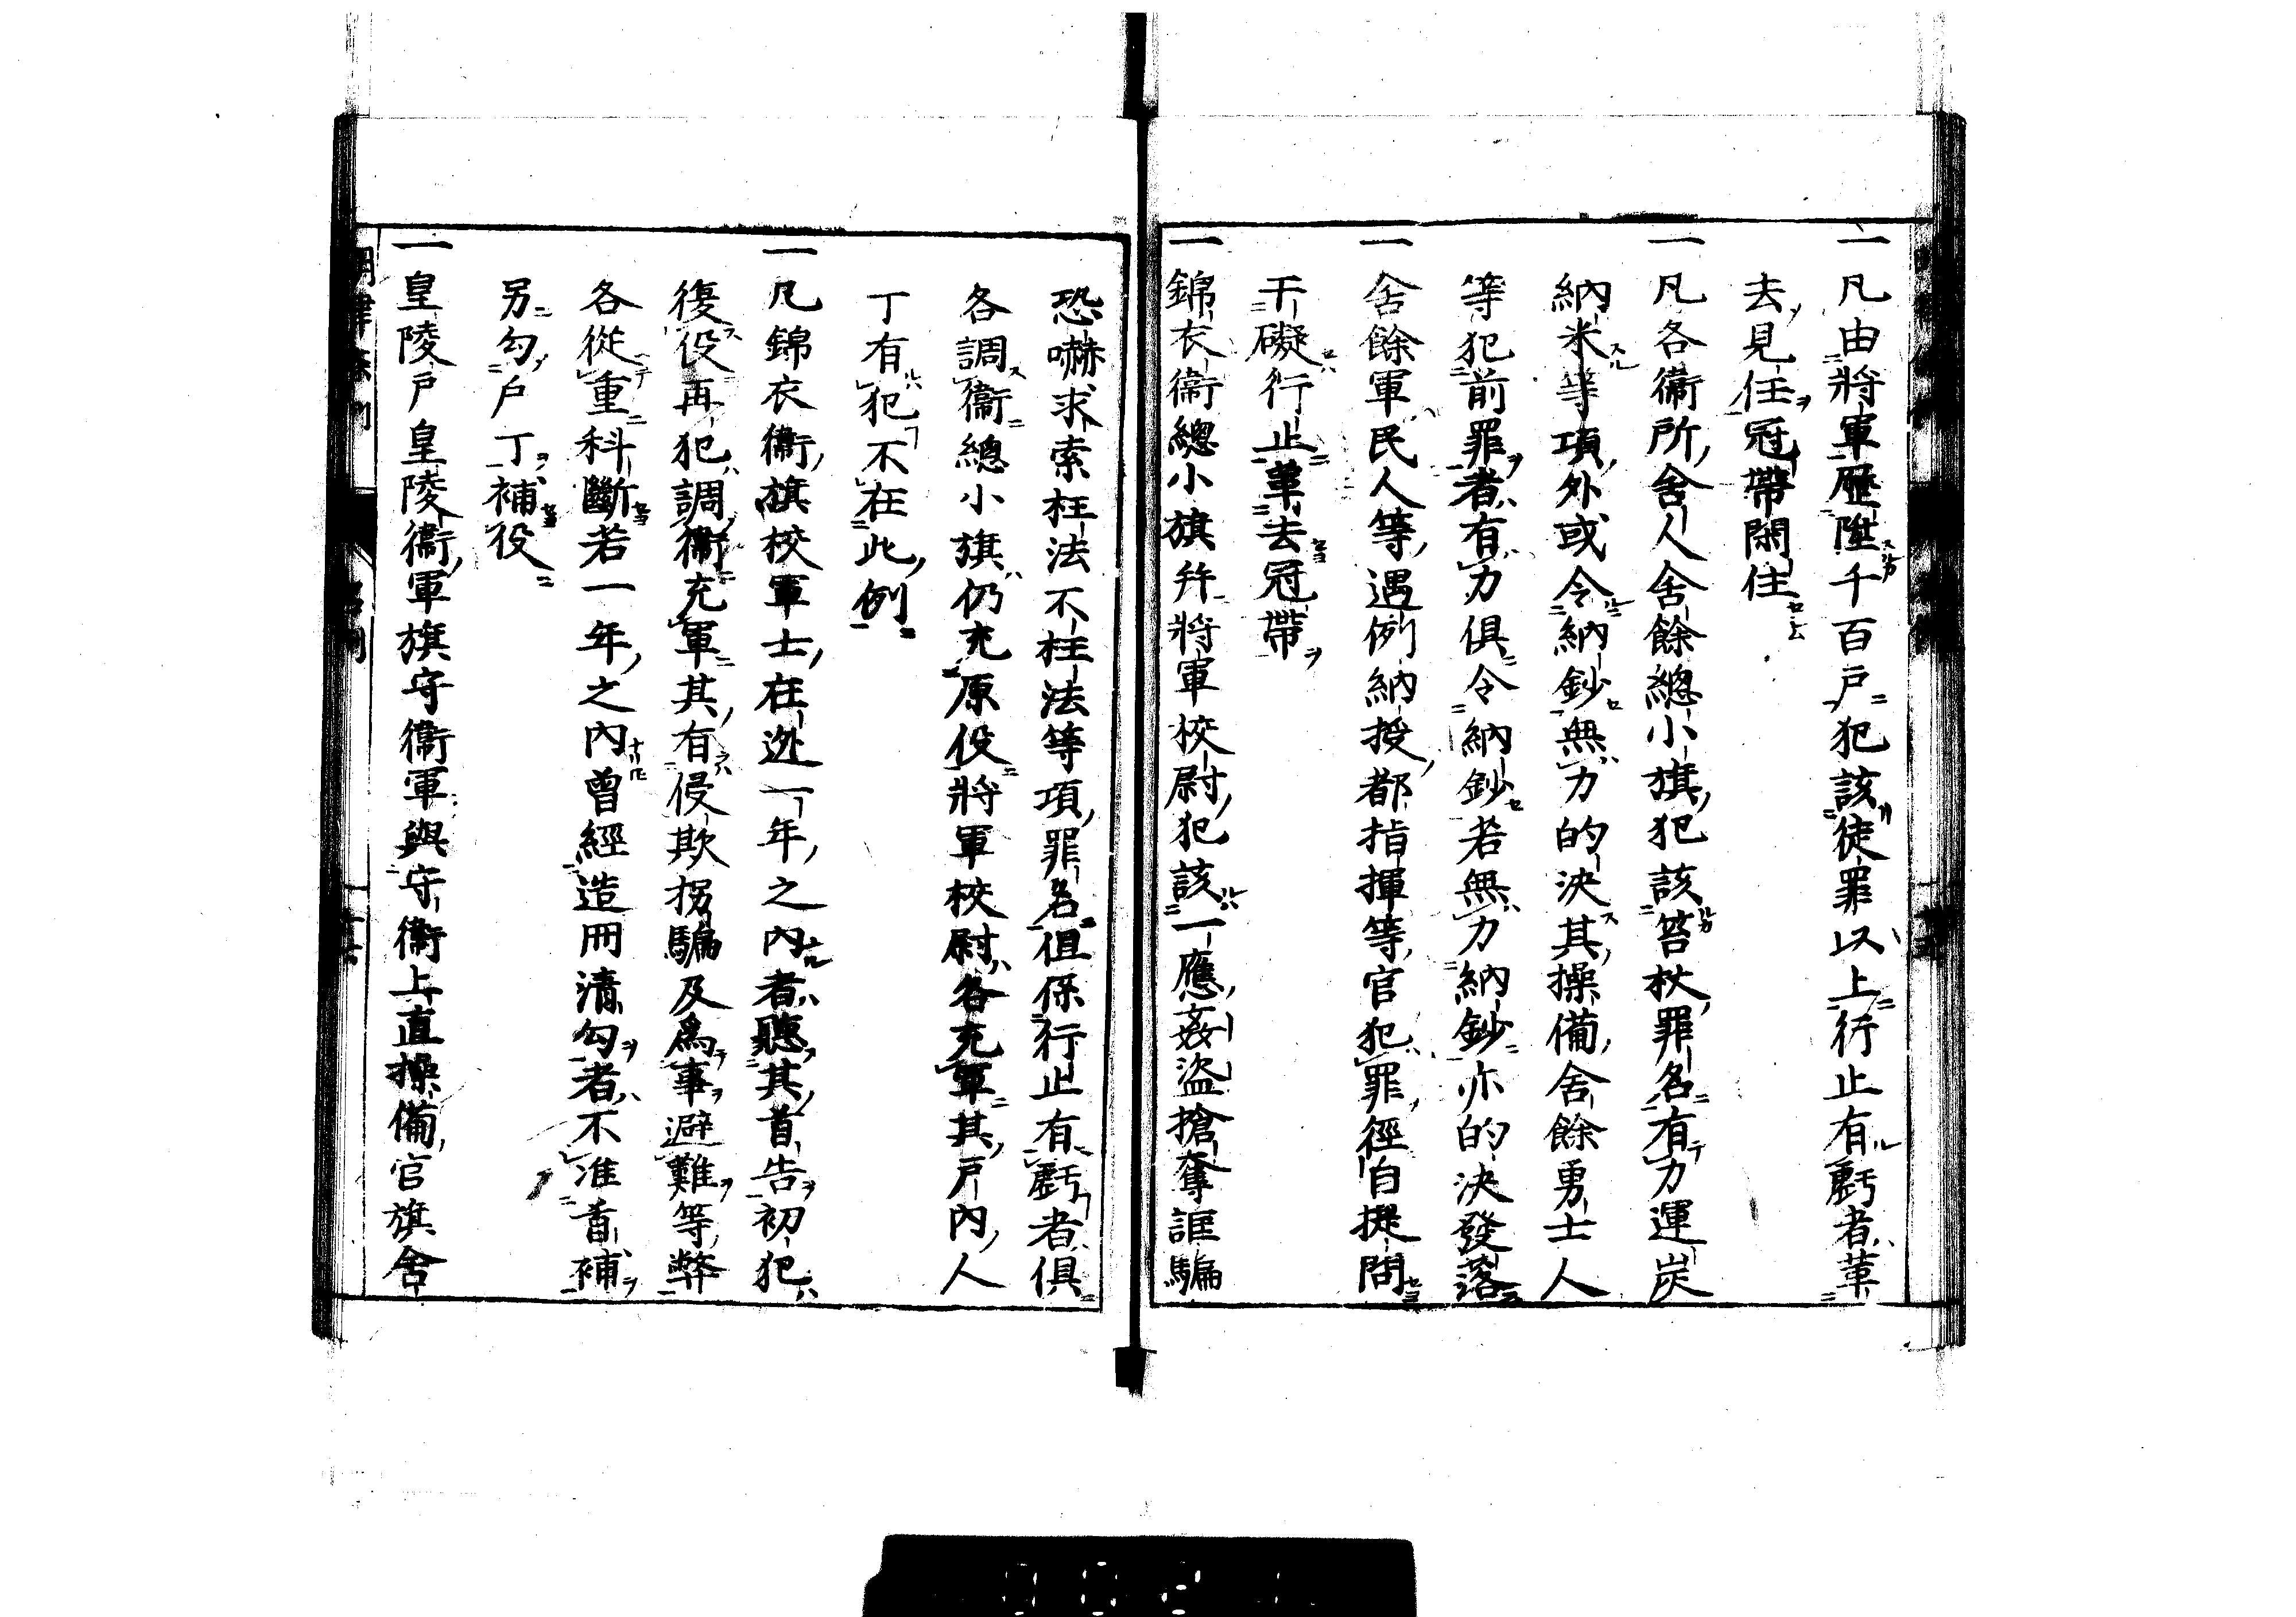 一凡由將軍歴陞千百戸犯該徒罪以上行止有虧者革
去見任冠帶閑住
一凡各衞所舍人舍餘總小旗犯該笞杖罪名有力運炭
納米等項外或令納鈔無力的決其操備舍餘勇士人
等犯前罪者有力俱令納鈔若無力納鈔亦的決發落
一舍餘軍民人等遇例納授都指揮等官犯罪徑自提問
干礙行止革去冠帶
一錦衣衞總小旗幷將軍校尉犯該一應姦盜搶奪誆騙
恐嚇求索枉法不枉法等項罪名但係行止有虧者俱
各調衞總小旗仍充原役將軍校尉各充軍其戸内人
丁有犯不在此例
一凡錦衣衞旗校軍士在逃一年之内者聽其首告初犯
復役再犯調衞充軍其有侵欺拐騙及爲事避難等弊
各從重科斷若一年之内曾經造冊清勾者不准首補
另勾戸丁補役
一皇陵戸皇陵衞軍旗守衞軍與守衞上直操備官旗舍